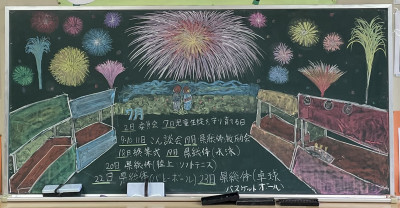 7月
2日 委員会 7日 児童生徒を守り育てる日
9・10・11日 こん談会 17日 県総体激励会
18日 終業式 19日 県総体(水泳)
20日 県総体(陸上 ソフトテニス)
22日 県総体(バレーボール) 23日 県総体(卓球
バスケットボール)